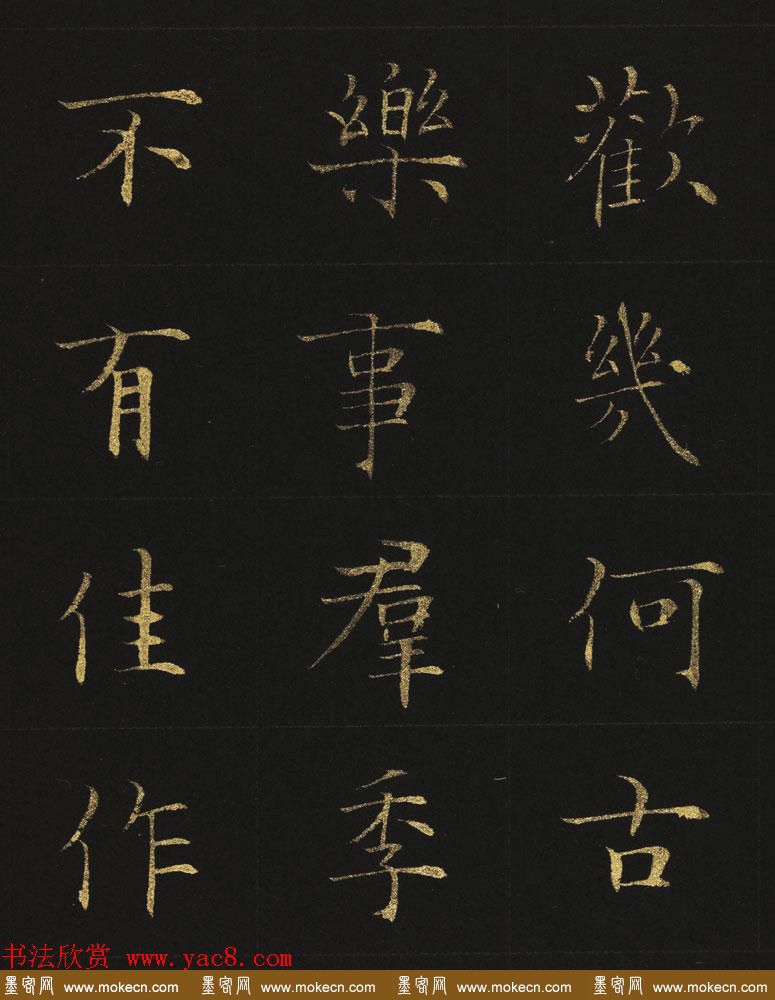 歡幾何古
樂事羣季
不有佳作
书法欣赏 www.yac8.com
墨客网 www.mokecn.com 墨客网 www.mokecn.com 墨客网 www.mokecn.com 墨客网 www.mokecn.com